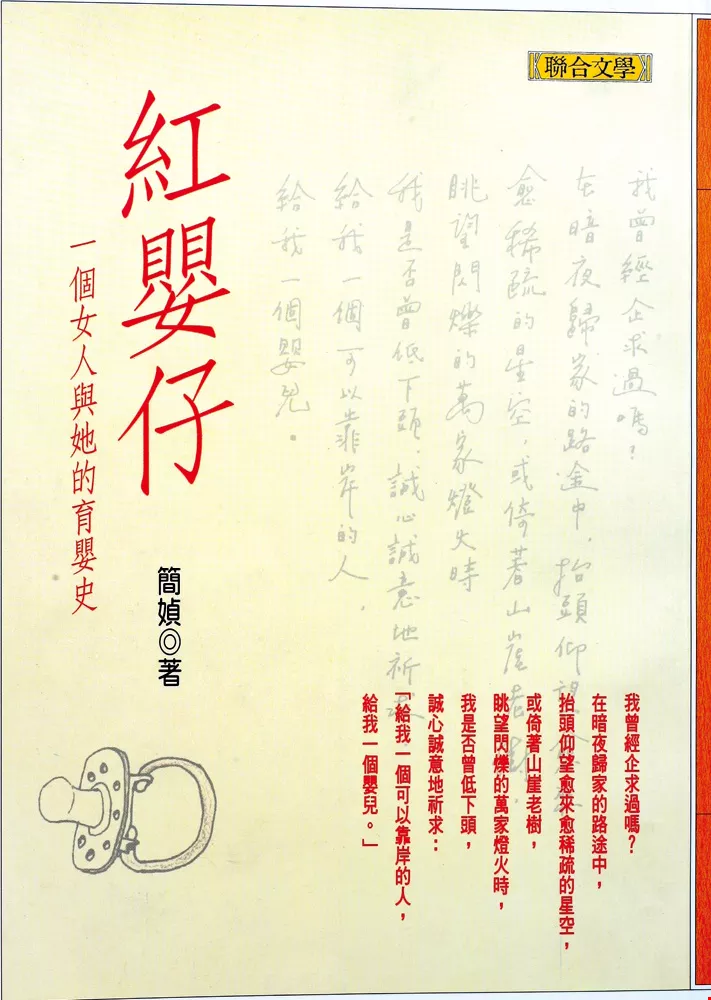 聯合文學
紅嬰仔
一個女人與她的育嬰史
簡媜◎著
我曾經企求過嗎？
在暗夜歸家的路途中，抬頭仰望愈來
愈稀疏的星空，或倚著山崖老樹，
眺望閃爍的萬家燈火時
我是否曾低下頭，誠心誠意地祈求
給我一個可以靠岸的人，
給我一個嬰兒。
我曾經企求過嗎？
在暗夜歸家的路途中，
抬頭仰望愈來愈稀疏的星空，
或倚著山崖老樹，
眺望閃爍的萬家燈火時，
我是否曾低下頭，
誠心誠意地祈求：
「給我一個可以靠岸的人，
給我一個嬰兒。」